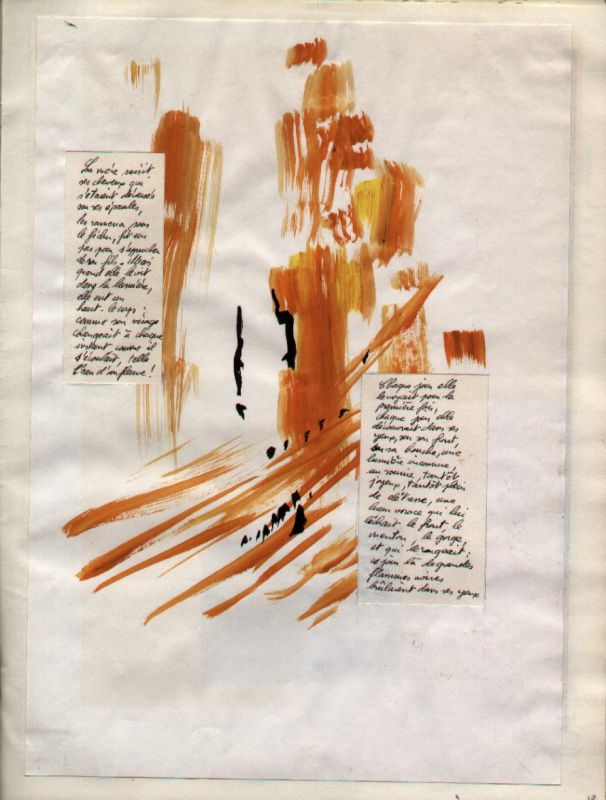 La mère saisit
ses cheveux qui
s'étaient déversés
sur ses épaules,
les ramena sous
le fichu, fit un
pas pour s'approcher
de son fils. Mais
quand elle le vit
dans la lumière,
elle eut un
haut-le-corps :
comme son visage
changeait à chaque
instant, comme il
s'écoulait, telle
l'eau d'un fleuve !
Chaque jour elle
le voyait pour la
première fois,
chaque jour elle
découvrait dans ses
yeux, sur son front,
sur sa bouche, une
lumière inconnue
un sourire, tantôt
joyeux, tantôt plein
de détresse, une
lueur vorace qui lui
léchait le front, le
menton, la gorge
et qui le rongeait ;
ce jour là de grandes
flammes noires
brûlaient dans ses yeux